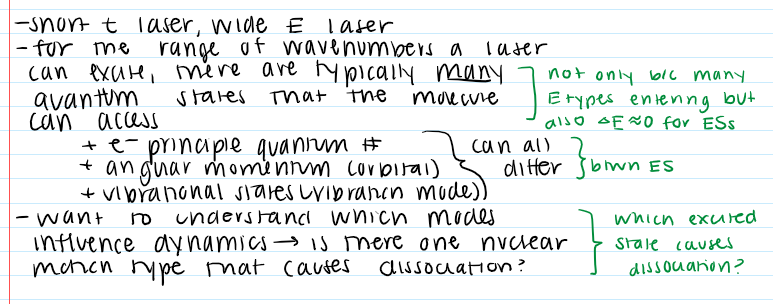 -short t laser, wide E laser
-for the range of wavenumbers a laser
can excite, there are typically many
quantum states that the molecule
can access
not only b/c many
E types entering but
also ΔE≈0 for ESs
+ e- principle quantum #
+ angular momentum (orbital)
+ vibrational states (vibration modes)
can all
differ
btwn ES
- want to understand which modes
influence dynamics → is there one nuclear
motion type that causes dissociation?
which excited
state causes
dissociation?